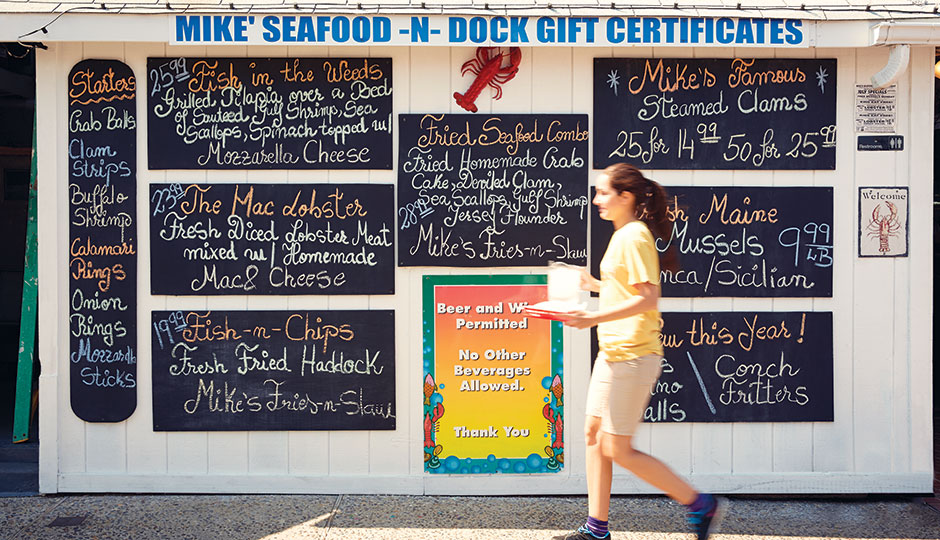 MIKE' SEAFOOD -N- DOCK GIFT CERTIFICATES
Starters
Crab Balls
Clam
Strips
Buffalo
Shrimp
Calamari
Rings
Onion
Rings
Mozzarella
Sticks
25.99 Fish in the Weeds
Grilled Tilapia over a Bed
of Sauteed Gulf Shrimp, Sea
Scallops, Spinach topped w/
Mozzarella Cheese
23.99 The Mac Lobster
Fresh Diced Lobster Meat
mixed w/ Homemade
Mac & Cheese
19.99 Fish-n-Chips
Fresh Fried Haddock
Mike's Fries-n-Slaw
Fried Seafood Combo
Fried Homemade Crab
Cake, Deviled Clam,
Sea Scallops, Gulf Shrimp
28.99 Jersey Flounder
Mike's Fries-n-Slaw
Beer and
Permitted
No Other
Beverages
Allowed.
Thank You
Mike's Famous
Steamed Clams
25 for 14.99 50 for 25.99
Maine
Mussels 9.99 LB
/Sicilian
This Year!
Conch
Fritters
Restrooms
Welcome